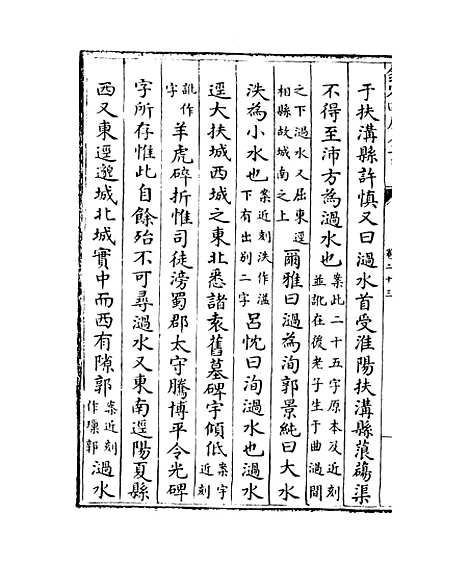 于扶溝縣許慎又曰過水首受淮陽扶溝縣蒗蕩渠
不得至沛方為過水也案此二十五字原本及近刻並訛在後老子生于曲過間
之下過水又屈東逕相縣故城南之上爾雅曰過為洵郭景純曰大水
泆為小水也案近刻泆作溢下有出别二字呂忱曰洵過水也過水
逕大扶城西城之東北悉諸袁舊墓碑宇傾低案宇近刻
訛作字羊虎碎折惟司徒滂蜀郡太守騰博平令光碑
字所存惟此自餘殆不可尋過水又東南逕陽夏縣
西又東逕邈城北城實中而西有隙郭案近刻作郭過水
卷二十三